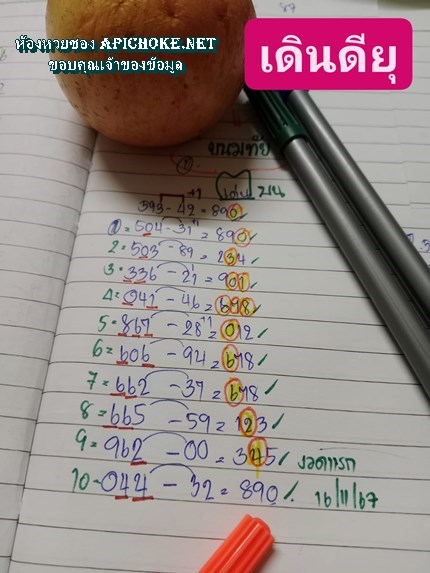 87
ห้องหวยซอง APICHOKE.NET
ขอบคุณเจ้าของข้อมูล
เดินดียุ
เด่น บน
393-42=890
1=504-31=890✓
2=503-89=234✓
3=336-21=901✓
4=041-46=698✓
5=867-28=012✓
6=606-94=678✓
7=662-37=678✓
8=665-59=123✓
9=962-00=345✓ งวดแรก
10-044-32=890✓ 16/11/67